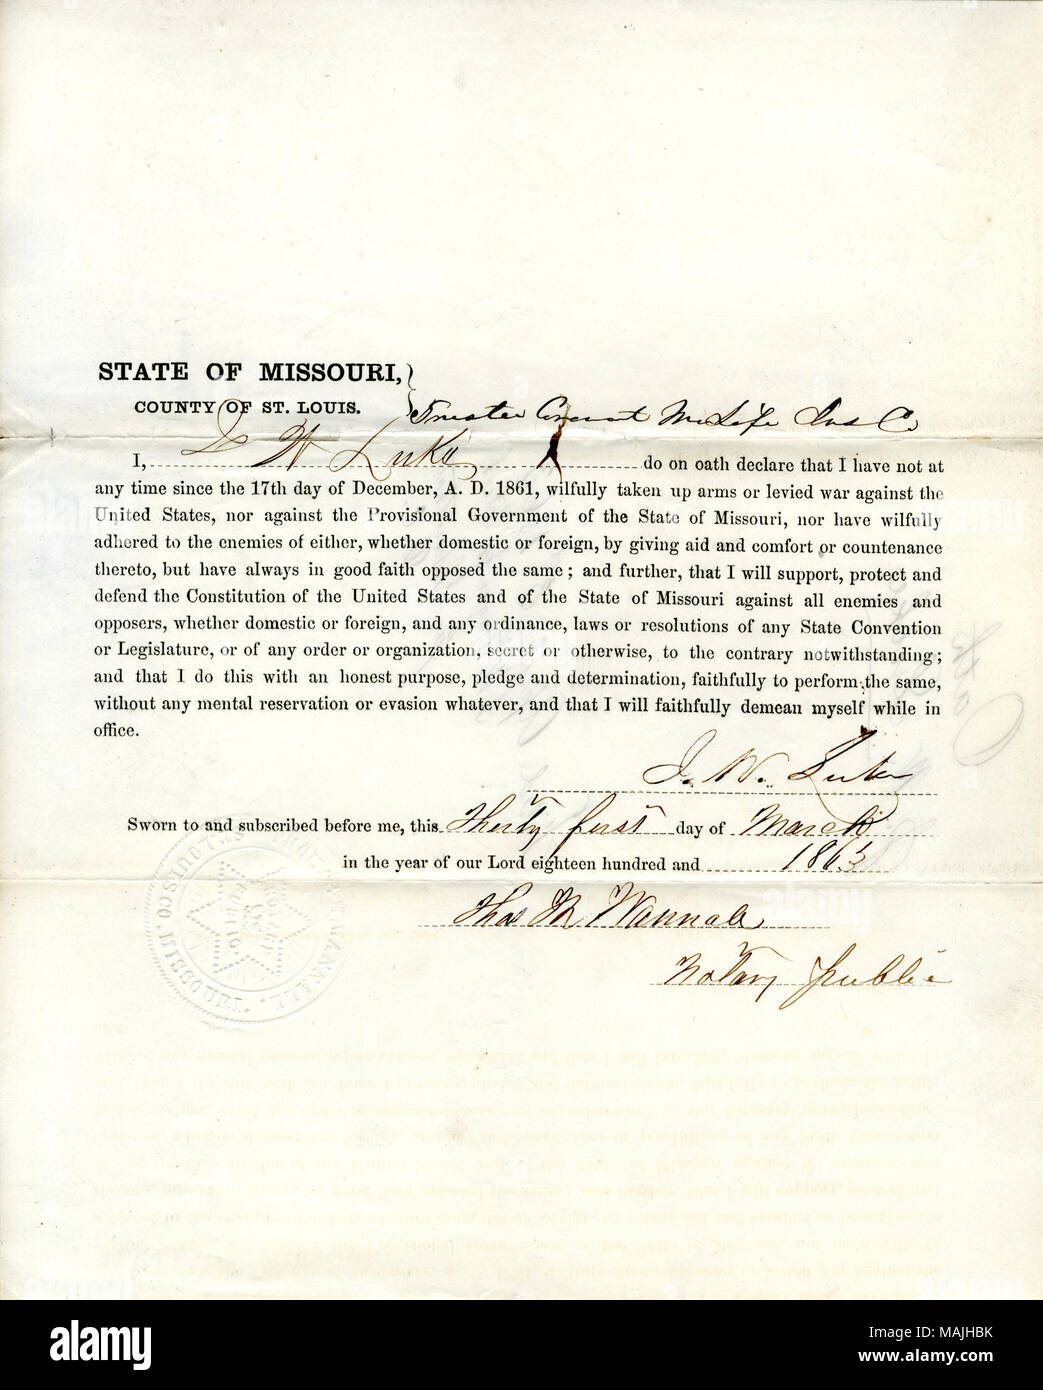 STATE OF MISSOURI,
COUNTY OF ST. LOUIS.
Trustee Covenant M Life Ins Co
I, J W Luke do on oath declare that I have not at
any time since the 17th day of December, A. D. 1861, wilfully taken up arms or levied war against the
United States, nor against the Provisional Government of the State of Missouri, nor have wilfully
adhered to the enemies of either, whether domestic or foreign, by giving aid and comfort or countenance
thereto, but have always in good faith opposed the same; and further, that I will support, protect and
defend the Constitution of the United States and of the State of Missouri against all enemies and
opposers, whether domestic or foreign, and any ordinance, laws or resolutions of any State Convention
or Legislature, or of any order or organization, secret or otherwise, to the contrary notwithstanding;
and that I do this with an honest purpose, pledge and determination, faithfully to perform the same,
without any mental reservation or evasion whatever, and that I will faithfully demean myself while in
office.
J. W. Luke
Sworn to and subscribed before me, this Thirty first day of March
in the year of our Lord eighteen hundred and 1863
Thos M Wannall
Notary Public
alamy
Image ID: MAJHBK
www.alamy.com